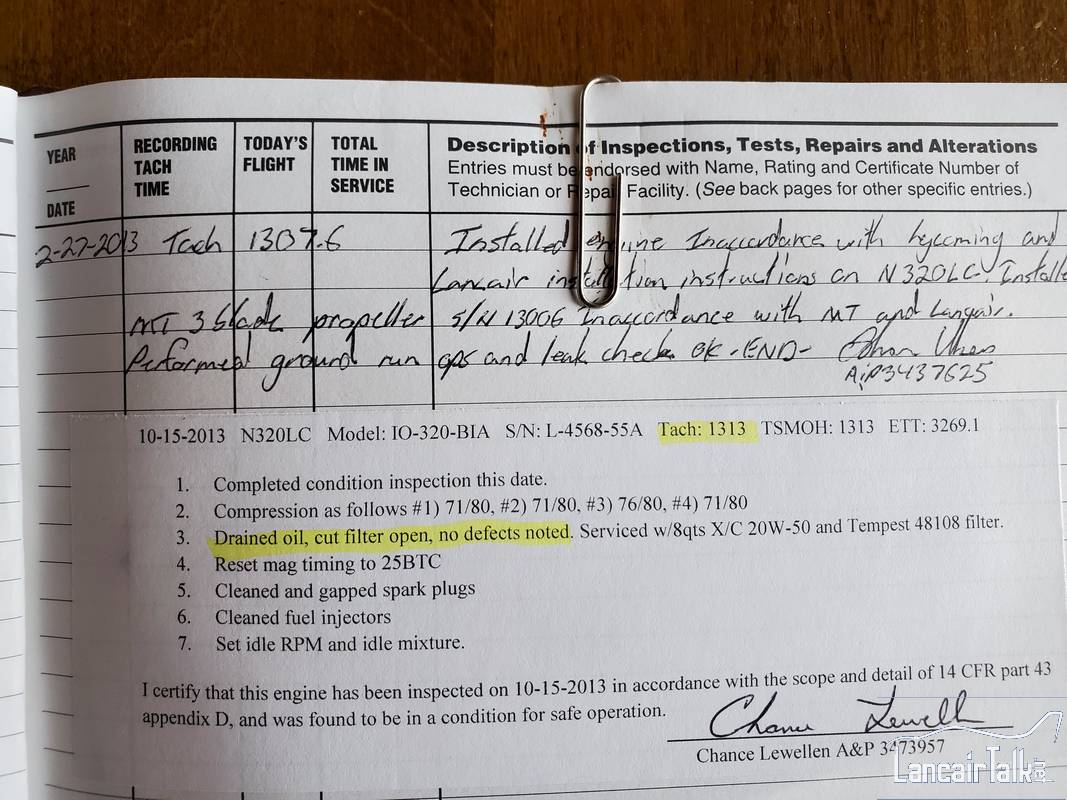 YEAR
DATE
RECORDING TACH TIME
TODAY'S FLIGHT
TOTAL TIME IN SERVICE
Description of Inspections, Tests, Repairs and Alterations
Entries must be endorsed with Name, Rating and Certificate Number of
Technician or Repair Facility. (See back pages for other specific entries.)
2-27-2013 Tach 1307.6 Installed engine Inaccordance with Lycoming and
Lancair installation instructions on N320LC. Installed
MT 3 blade propeller S/N 13006 Inaccordance with MT and Lancair.
Performed ground run ops and leak check OK -END-
A&P3437625
10-15-2013 N320LC Model: IO-320-BIA S/N: L-4568-55A Tach: 1313 TSMOH: 1313 ETT: 3269.1
1. Completed condition inspection this date.
2. Compression as follows #1) 71/80, #2) 71/80, #3) 76/80, #4) 71/80
3. Drained oil, cut filter open, no defects noted. Serviced w/8qts X/C 20W-50 and Tempest 48108 filter.
4. Reset mag timing to 25BTC
5. Cleaned and gapped spark plugs
6. Cleaned fuel injectors
7. Set idle RPM and idle mixture.
I certify that this engine has been inspected on 10-15-2013 in accordance with the scope and detail of 14 CFR part 43
appendix D, and was found to be in a condition for safe operation.
Chance Lewellen
Chance Lewellen A&P 3473957
LancairTalk